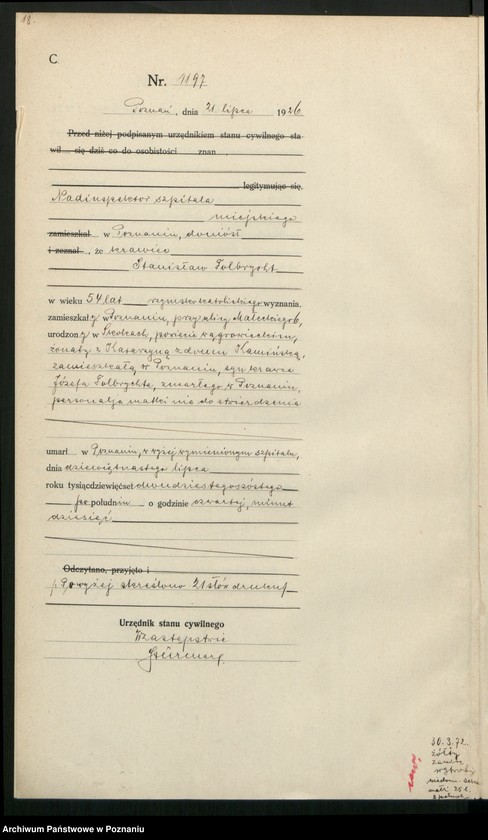 18.
C
Nr. 1197
Poznań, dnia 21 lipca 1926
Przed niżej podpisanym urzędnikiem stanu cywilnego sta
wił się dziś co do osobistości znan
legitymując się.
Nadinspektor szpitala
miejskiego
zamieszkał w Poznaniu, doniósł
i zeznał, że krawiec
Stanisław Folbrycht
w wieku 54 lat rzymskokatolickiego wyznania,
zamieszkały w Poznaniu, przy ulicy Małeckiego 6,
urodzony w powiecie wągrowieckim,
żonaty z Katarzyną z domu Kamińską,
zamieszkałą w Poznaniu, syn
Józefa Folbrychta, zmarłego w Poznaniu,
personalja matki nie do stwierdzenia
umarł w Poznaniu, w wyżej wymienionym szpitalu,
dnia dziewiętnastego lipca
roku tysiącdziewięćset dwudziestego szóstego
po południu o godzinie czwartej, minut
dziesięć
Odczytano, przyjęto i
Powyżej skreślono 21 słów druku
Urzędnik stanu cywilnego
W zastępstwie
30.3.72.
Archiwum Państwowe w Poznaniu